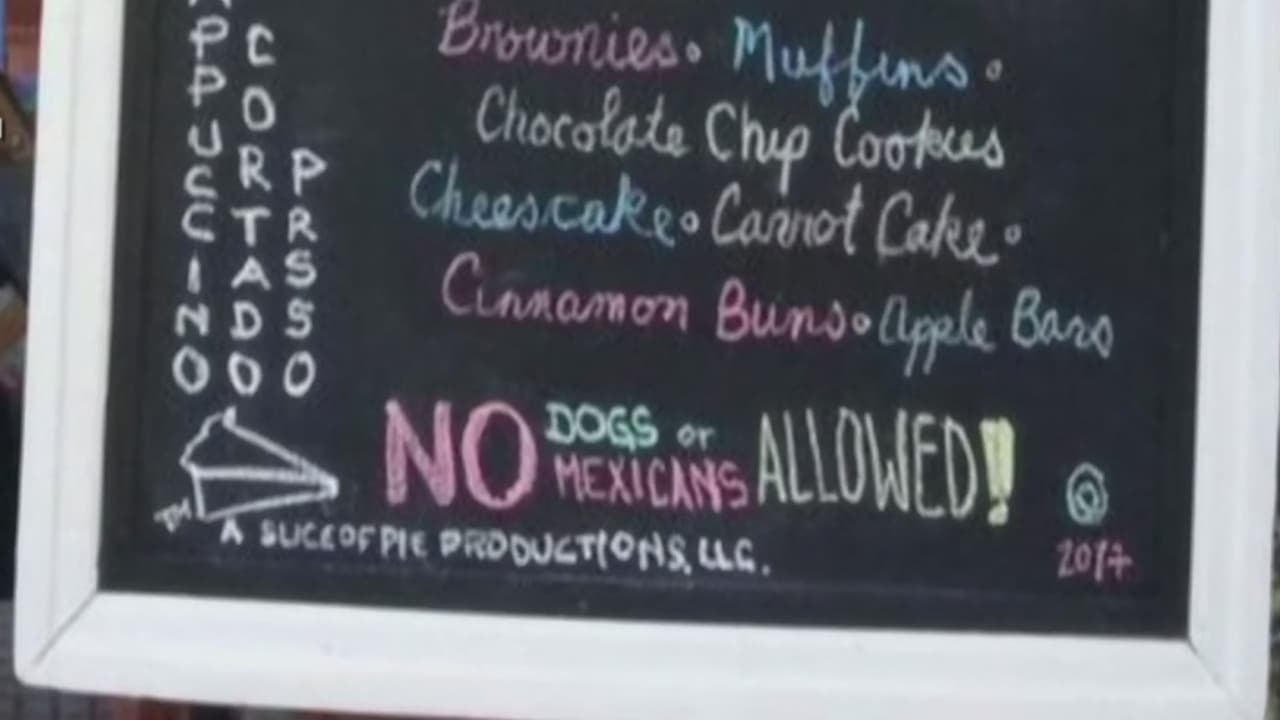 Brownies • Muffins •
Chocolate Chip Cookies
Cheescake • Carrot Cake •
Cinnamon Buns • Apple Bars
PPUCCINO
CORTADO
PRSSO
NO DOGS or MEXICANS ALLOWED!!
TM
A SLICE OF PIE PRODUCTIONS, LLC.
2017